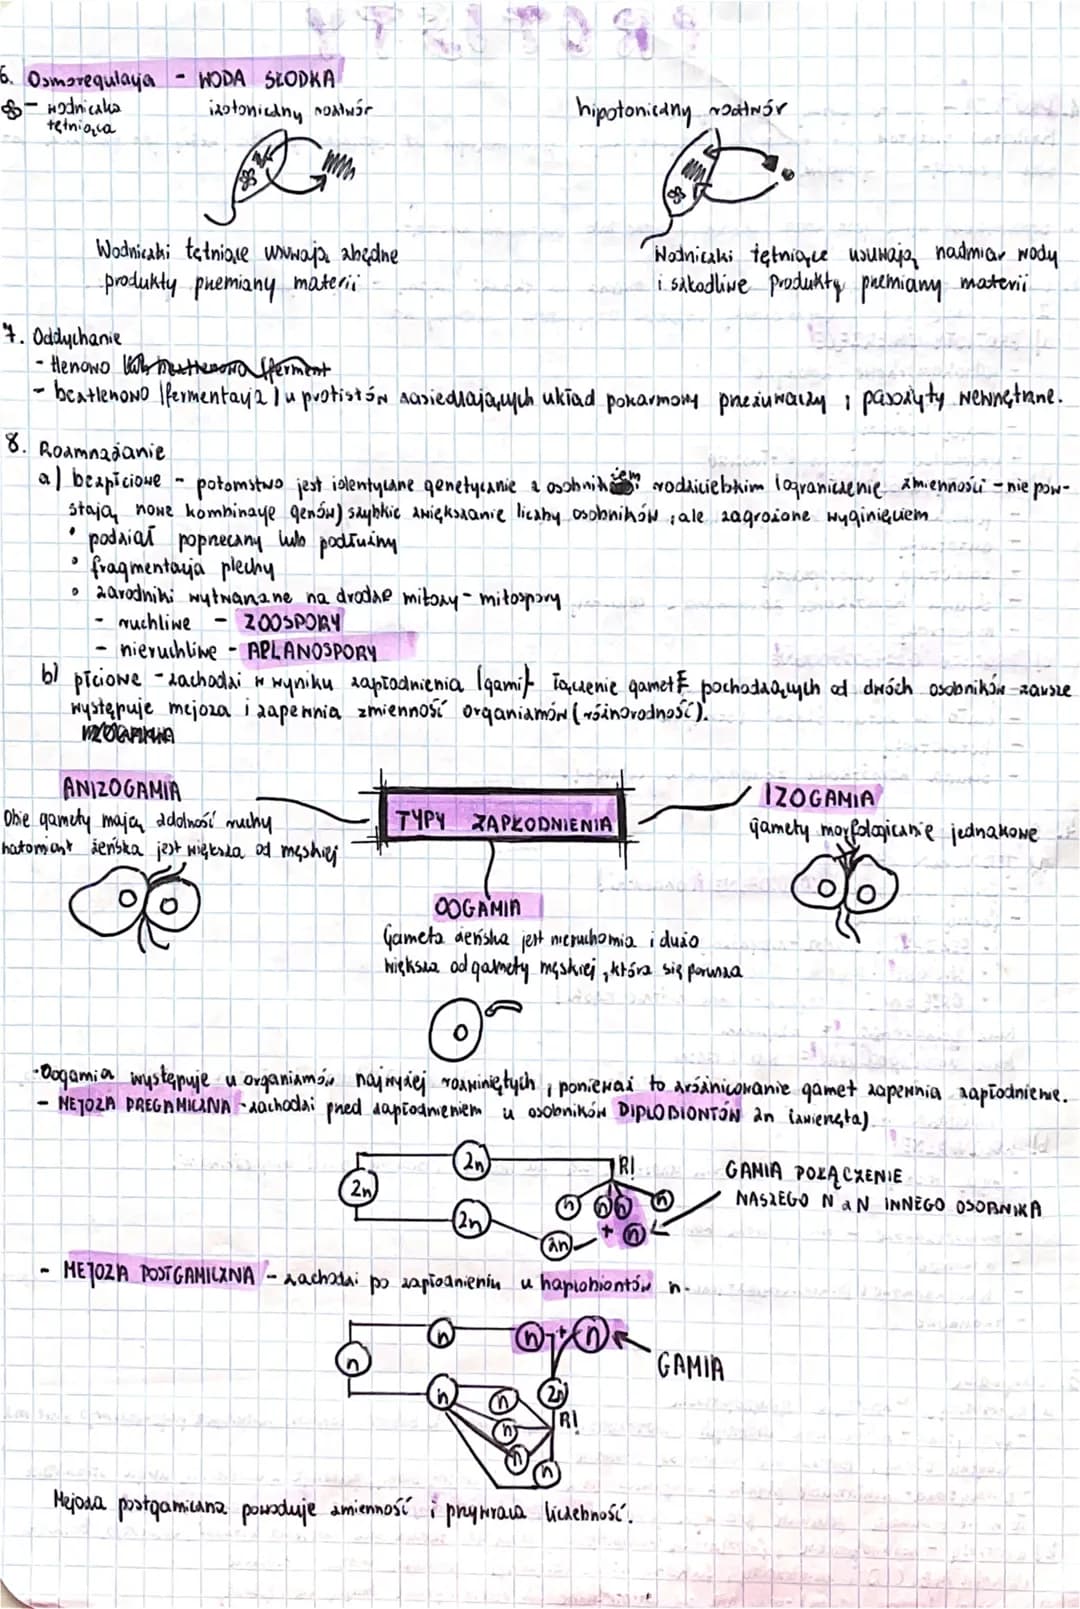 PROTISTY
6. Osmoregulacja - WODA SŁODKA
- wodniczka
tętniąca
izotoniczny roztwór
hipotoniczny roztwór
Wodniczki tętniące usuwają zbędne
produkty przemiany materii
Wodniczki tętniące usuwają nadmiar wody
i szkodliwe produkty przemiany materii
7. Oddychanie
- tlenowo
- beztlenowo (fermentacja) u protistów zasiedlających układ pokarmowy przeżuwaczy i pasożyty wewnętrzne.
8. Rozmnażanie
a) bezpłciowe - potomstwo jest identyczne genetycznie z osobnikiem rodzicielskim (ograniczenie zmienności - nie pow-
stają nowe kombinacje genów) szybkie zwiększanie liczby osobników, ale zagrożone wyginięciem
• podział poprzeczny lub podłużny
• fragmentacja plechy
• zarodniki wytwarzane na drodze mitozy - mitospory
- ruchliwe - ZOOSPORY
- nieruchliwe - APLANOSPORY
b) płciowe - zachodzi w wyniku zapłodnienia (gamii) łączenie gamet pochodzących od dwóch osobników zawsze
występuje mejoza i zapewnia zmienność organizmów (różnorodność).
ANIZOGAMIA
Obie gamety mają zdolność ruchu
natomiast żeńska jest większa od męskiej
TYPY ZAPŁODNIENIA
IZOGAMIA
gamety morfologicznie jednakowe
OOGAMIA
Gameta żeńska jest nieruchomia i dużo
większa od gamety męskiej, która się porusza
·Oogamia występuje u organizmów najwyżej rozwiniętych, ponieważ to zróżnicowanie gamet zapewnia zapłodnienie.
- MEJOZA PREGAMICZNA - zachodzi przed zapłodnieniem u osobników DIPLOBIONTÓW 2n (zwierzęta)
2n
2n
2n
R!
n n n n
2n + n
GAMIA POŁĄCZENIE
NASZEGO N z N INNEGO OSOBNIKA
- MEJOZA POSTGAMICZNA - zachodzi po zapłodnieniu u haplobiontów n.
n
n
n + n
GAMIA
n
2n
R!
n
n
n
n
Mejoza postgamiczna powoduje zmienność i przywraca liczebność.